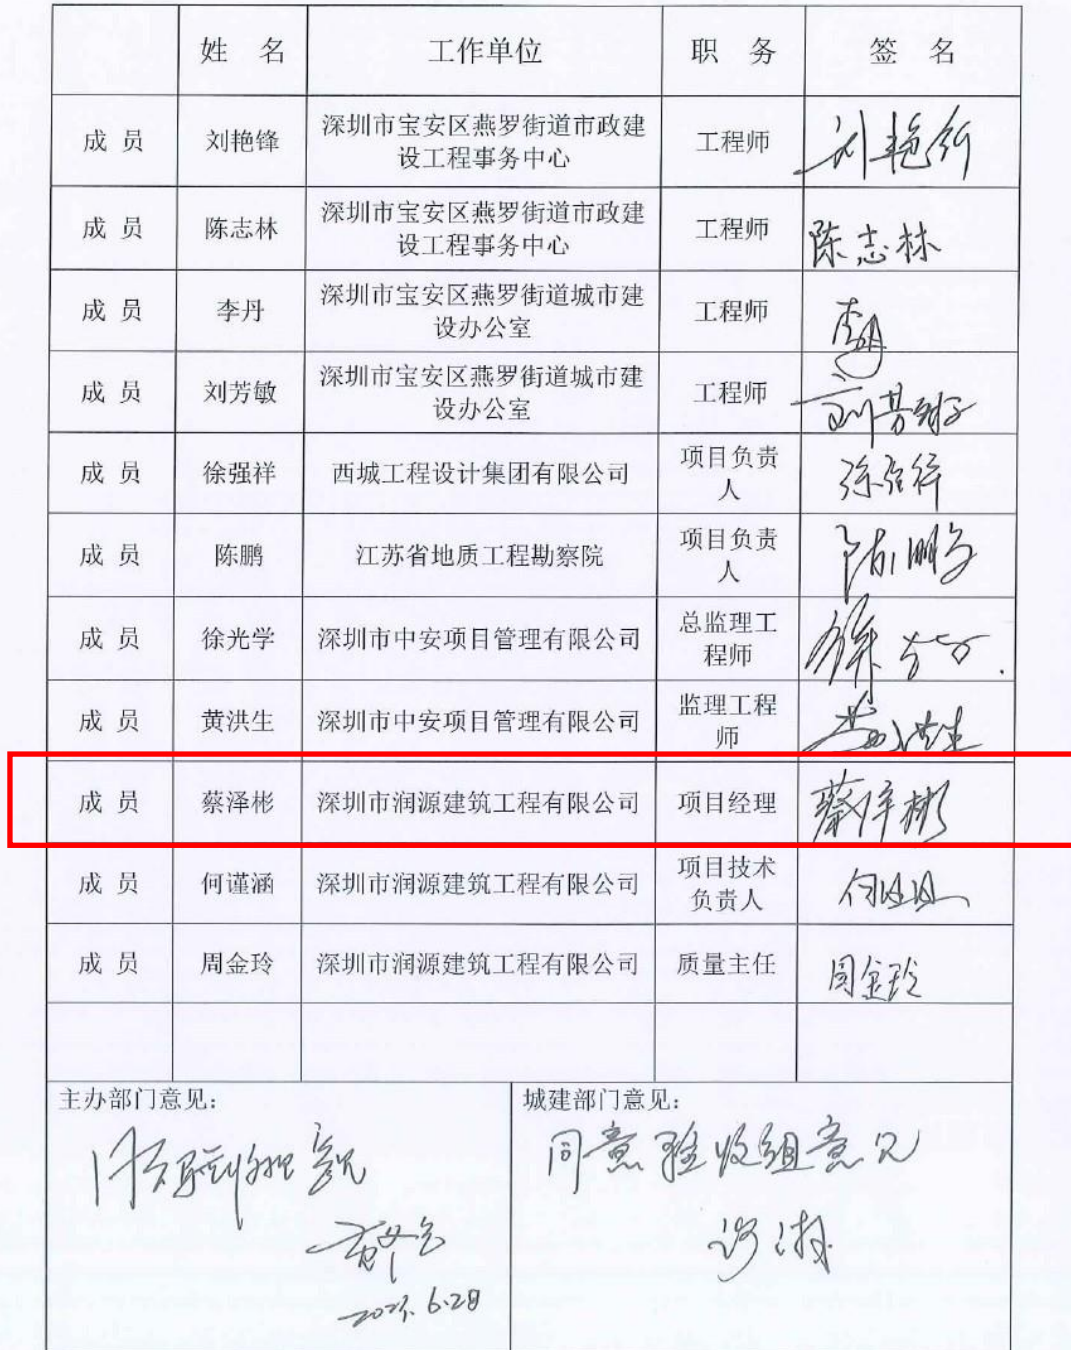 姓 名 工作单位 职 务 签 名
成 员 刘艳锋 深圳市宝安区燕罗街道市政建 工程师 刘艳锋
设工程事务中心
成 员 陈志林 深圳市宝安区燕罗街道市政建 工程师 陈志林
设工程事务中心
成 员 李丹 深圳市宝安区燕罗街道城市建 工程师 李丹
设办公室
成 员 刘芳敏 深圳市宝安区燕罗街道城市建 工程师 刘芳敏
设办公室
成 员 徐强祥 西城工程设计集团有限公司 项目负责 徐强祥
人
成 员 陈鹏 江苏省地质工程勘察院 项目负责 陈鹏
人
成 员 徐光学 深圳市中安项目管理有限公司 总监理工 徐光学
程师
成 员 黄洪生 深圳市中安项目管理有限公司 监理工程 黄洪生
师
成 员 蔡泽彬 深圳市润源建筑工程有限公司 项目经理 蔡泽彬
成 员 何谨涵 深圳市润源建筑工程有限公司 项目技术
负责人
成 员 周金玲 深圳市润源建筑工程有限公司 质量主任 周金玲
主办部门意见： 城建部门意见：
同意验收组意见